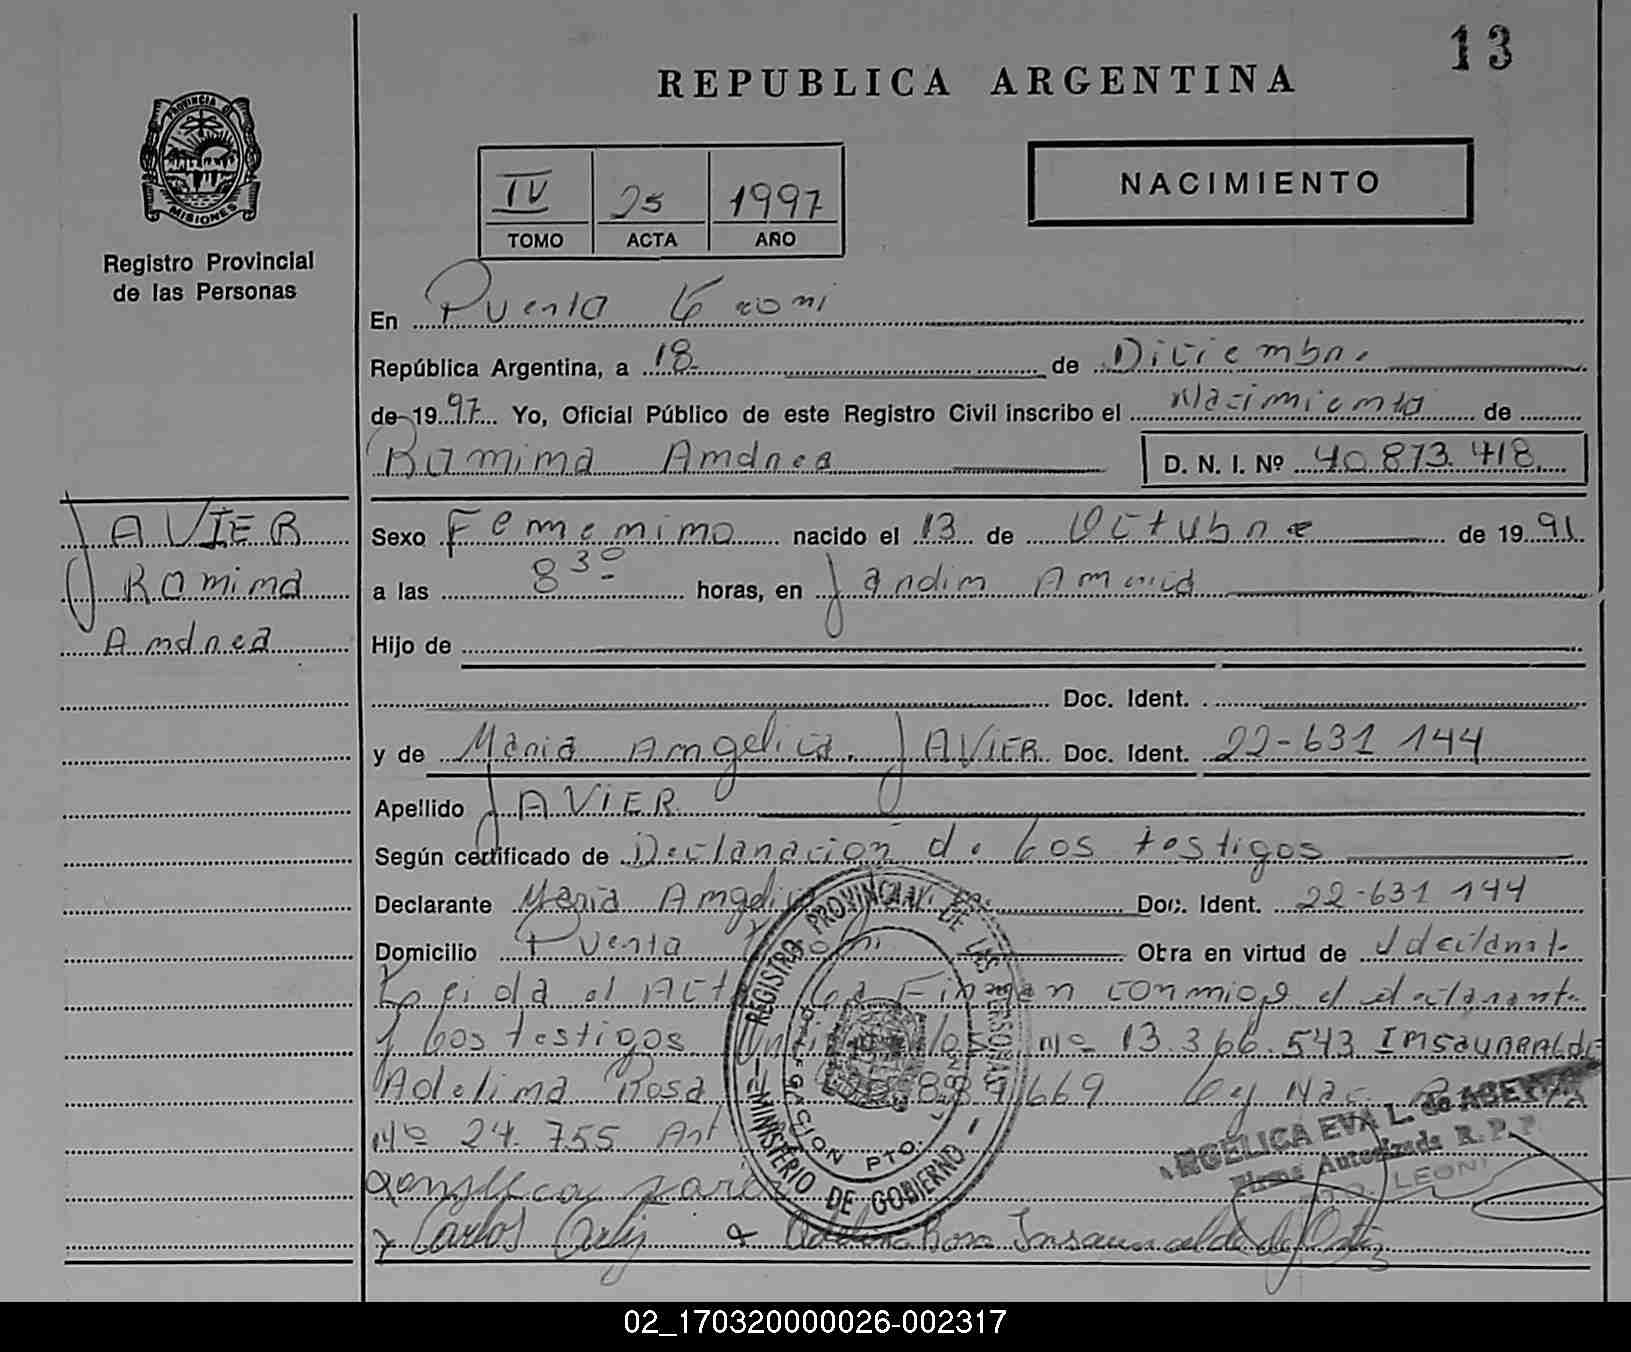 13
REPUBLICA ARGENTINA
PROVINCIA DE MISIONES
Registro Provincial
de las Personas
IV 25 1997
TOMO ACTA AÑO
NACIMIENTO
En Puerto Leoni
República Argentina, a 18 de Diciembre
de 1997 Yo, Oficial Público de este Registro Civil inscribo el Nacimiento de
Romina Andrea D. N. I. Nº 40.873.418
JAVIER
Romina
Andrea
Sexo Femenino nacido el 13 de Octubre de 1991
a las 8 30 horas, en Jardin America
Hijo de
Doc. Ident.
y de Maria Angelica JAVIER Doc. Ident. 22-631 144
Apellido JAVIER
Según certificado de Declaracion de Los testigos
Declarante Maria Angelica Doc. Ident. 22-631 144
Domicilio Puerto Leoni Obra en virtud de
Leida el Acta La Firman conmigo el declarante
y Los testigos Nº 13.366.543 Insaurralde
Adelina Rosa Ley Nac.
Nº 24.755
Carlos Ortiz Adelina Rosa Insaurralde de Ortiz
REGISTRO PROVINCIAL DE LAS PERSONAS
MINISTERIO DE GOBIERNO
DELEGACION PTO. LEONI
ANGELICA EVA L. de
Firma Autorizada R.P.P.
PTO. LEONI
02_170320000026-002317